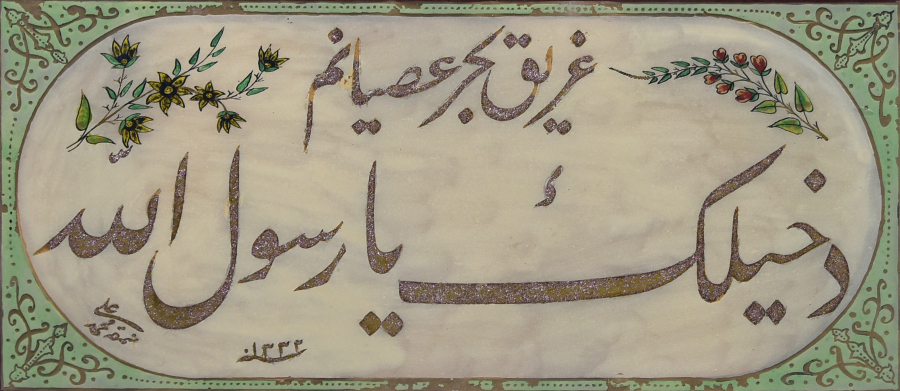 غريق بحر عصيانم
دخيلك يا رسول الله
١٣٣٢